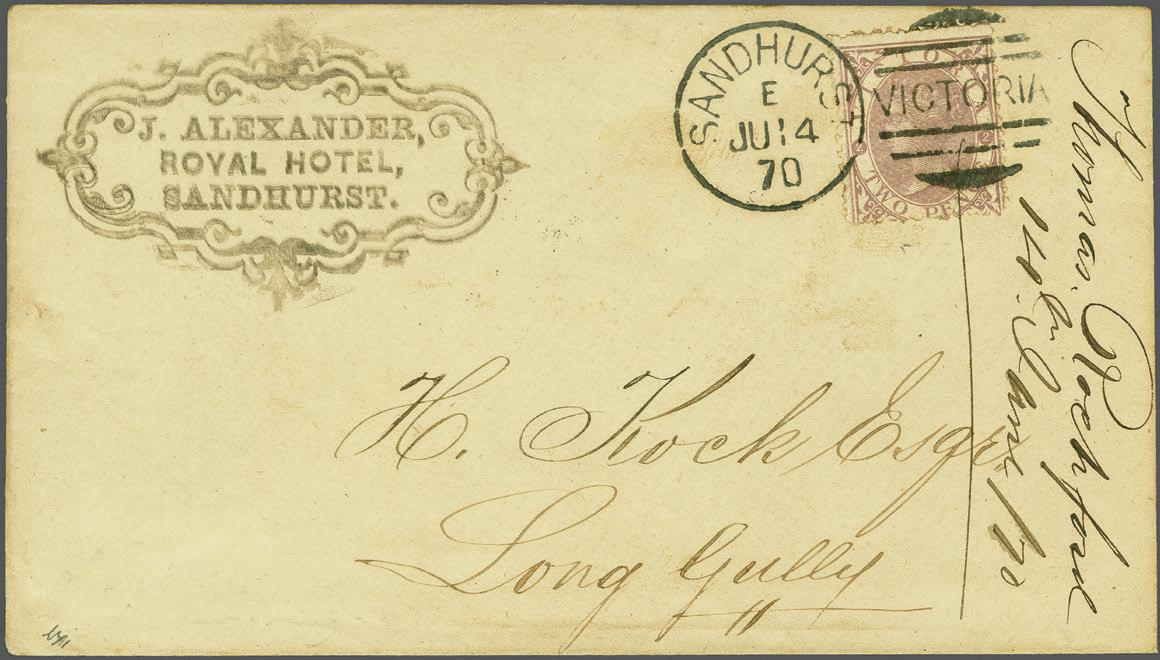 J. ALEXANDER,
ROYAL HOTEL,
SANDHURST.
SANDHURST
E
JU 14
70
VICTORIA
TWO PE
H. Kock Esqr.
Long Gully
Thomas Rochford
June /70